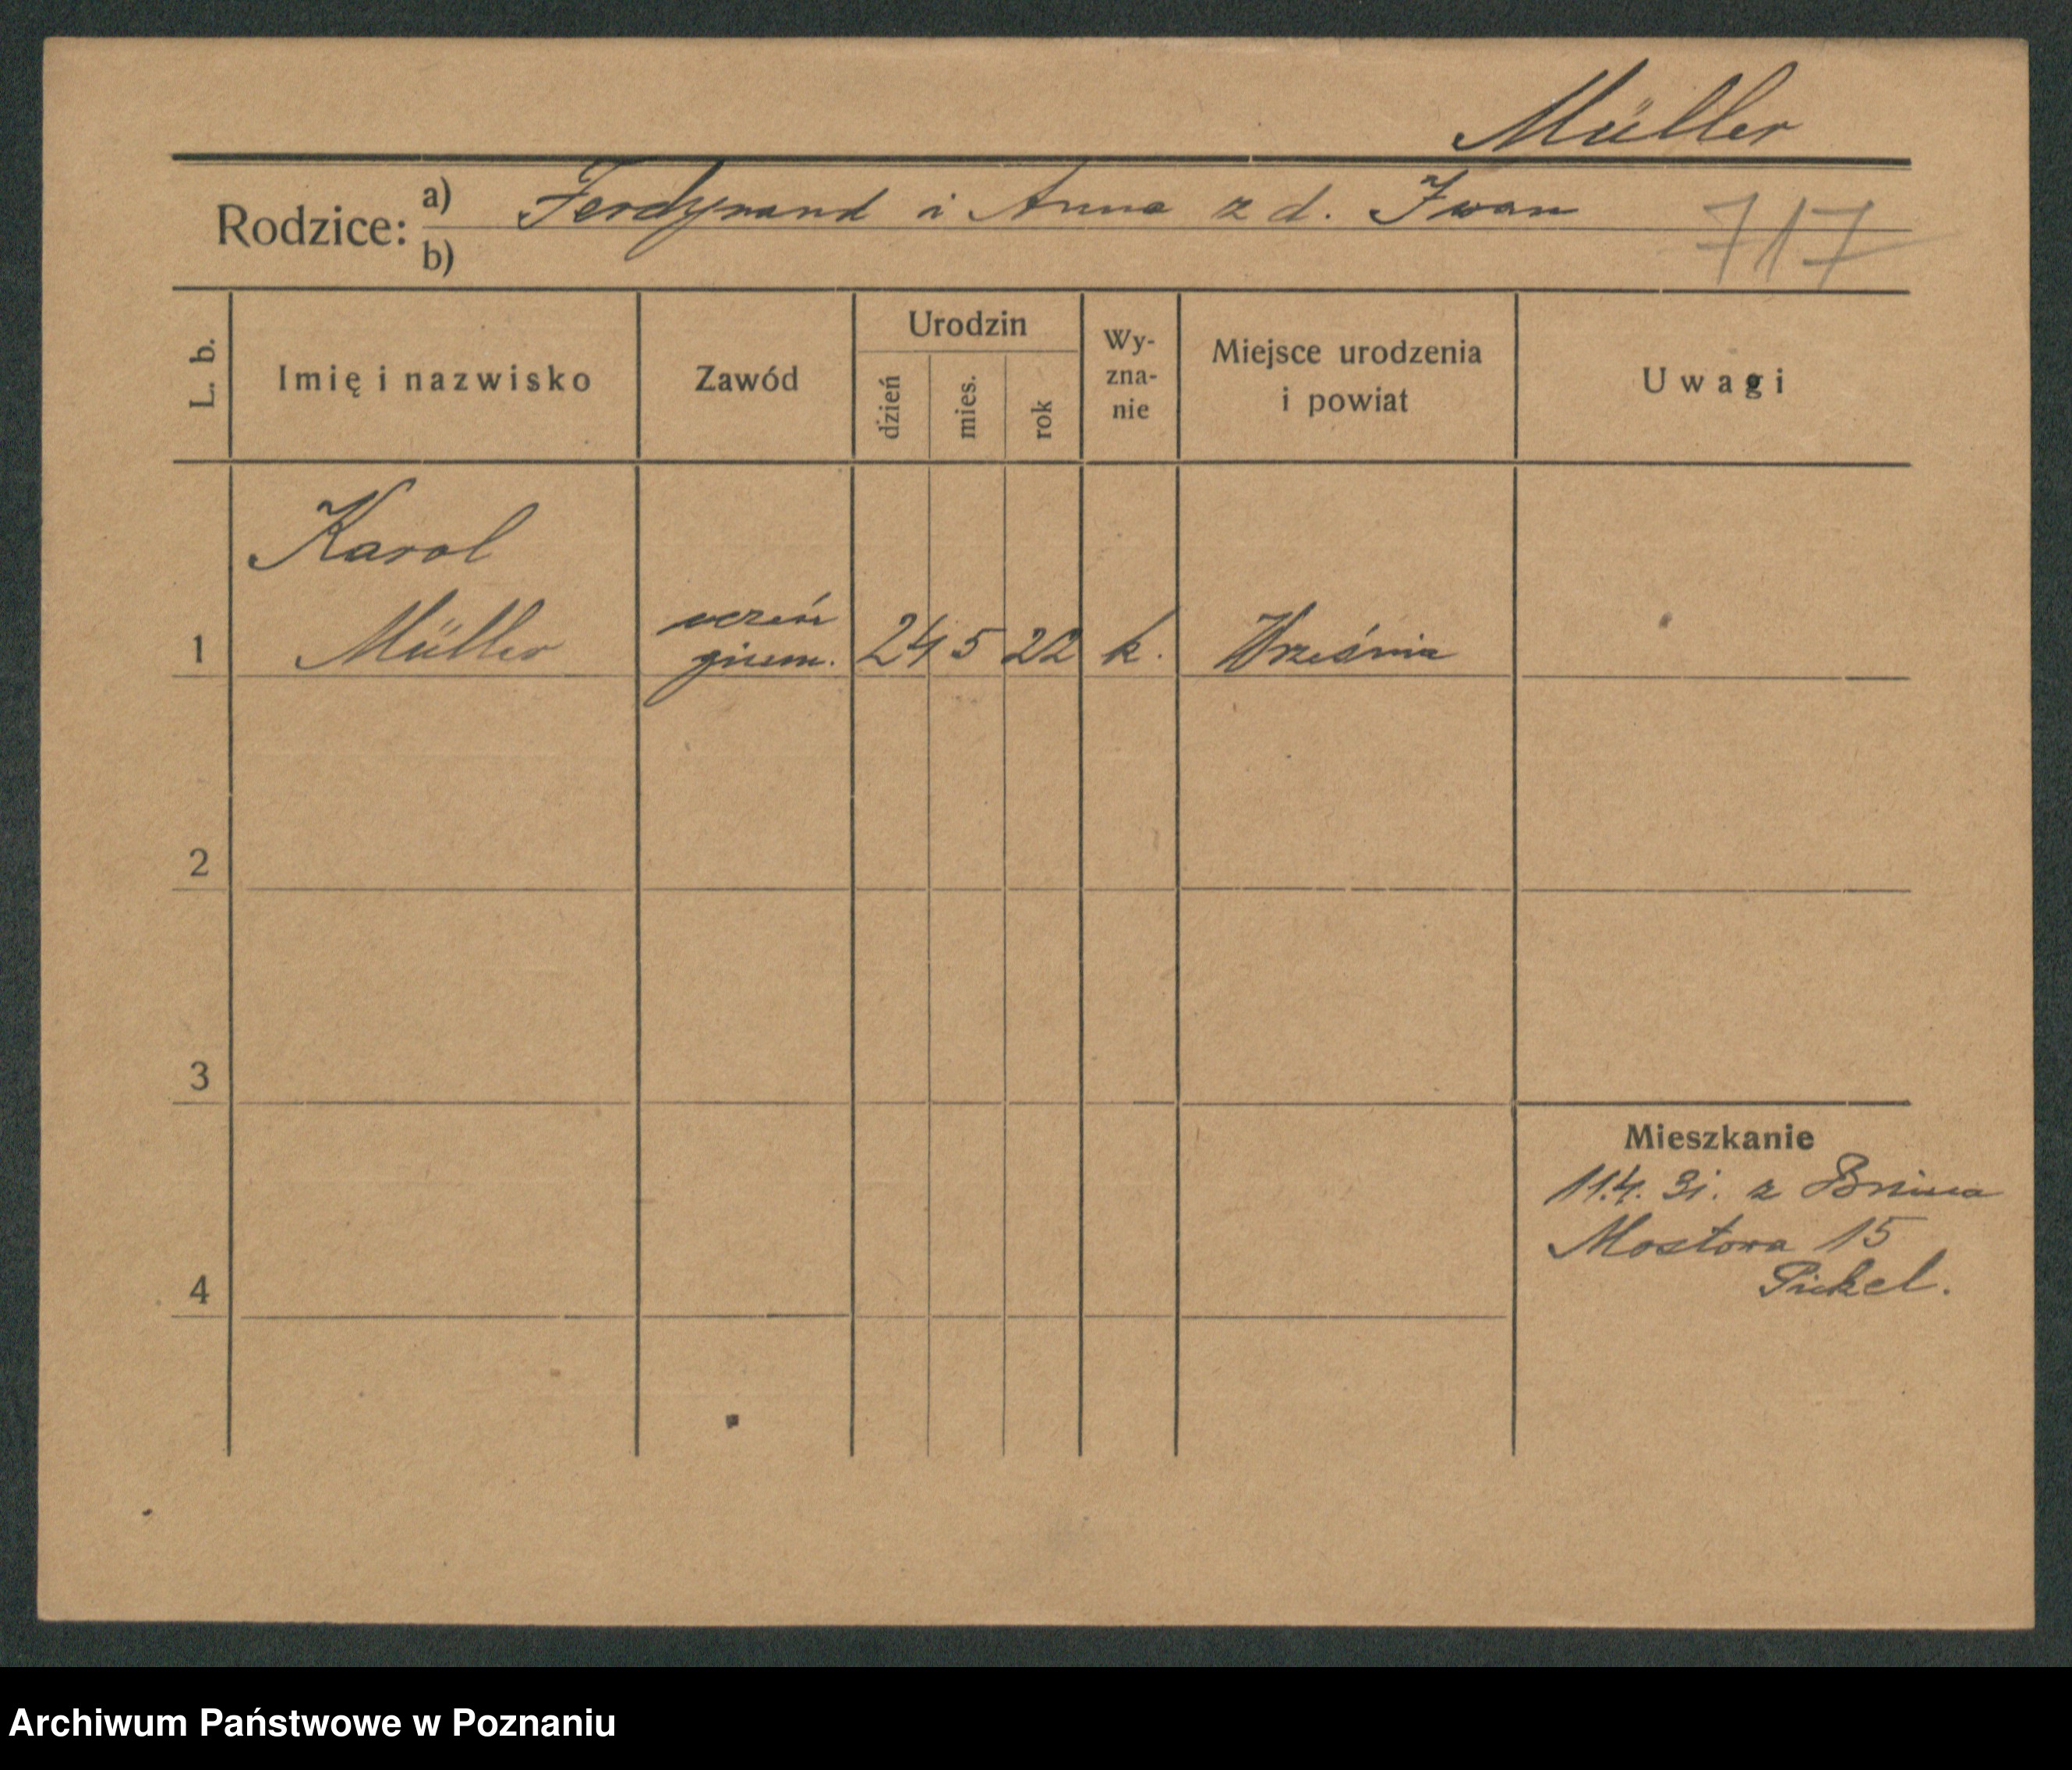 Müller
Rodzice: a) Ferdynand i Anna z d. Iwan
b)
717
L. b.
Imię i nazwisko
Zawód
Urodzin
dzień
mies.
rok
Wy-
zna-
nie
Miejsce urodzenia
i powiat
Uwagi
Karol
1 Müller uczeń gimn. 24 5 22 k. Września
2
3
Mieszkanie
11.4. 31. z Bnina
Mostowa 15
4
Archiwum Państwowe w Poznaniu